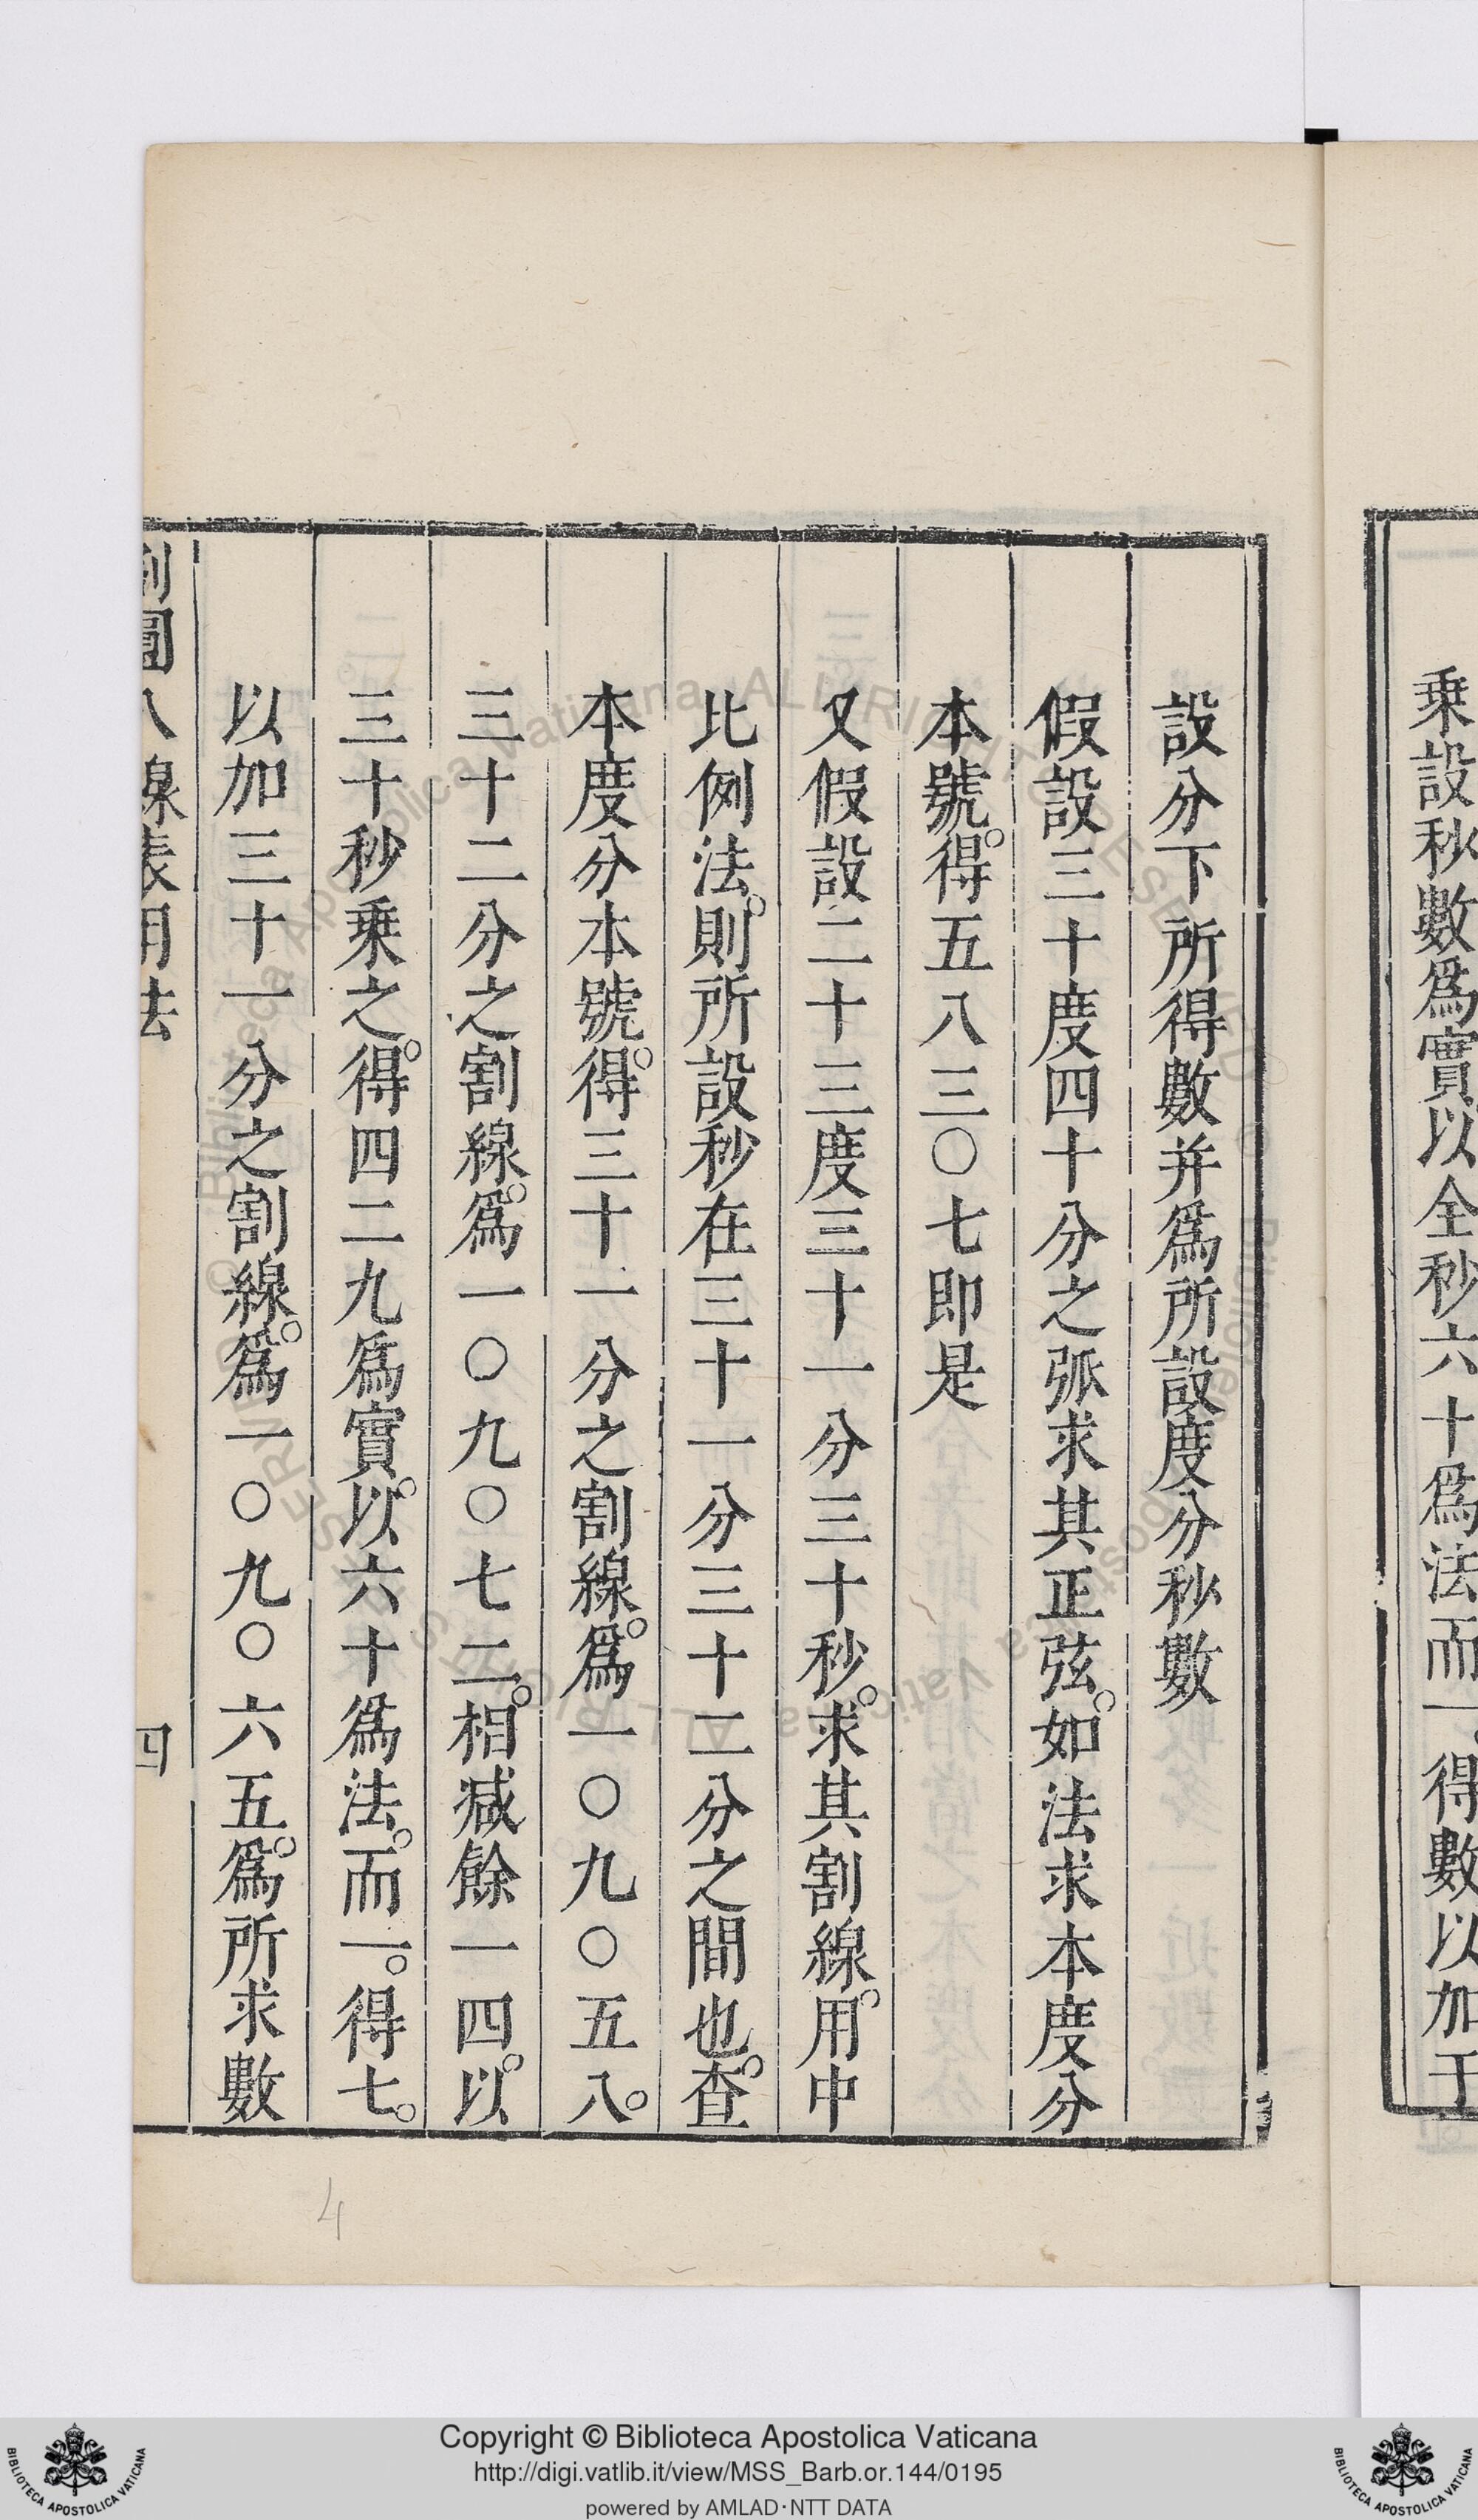 乘設秒數爲實以全秒六十爲法而一。得數以加于
設分下所得數并爲所設度分秒數
假設三十度四十分之弧求其正弦。如法求本度分
本號。得五八三〇七即是
又假設二十三度三十一分三十秒。求其割線。用中
比例法。則所設秒在三十一分三十二分之間也。查
本度分本號。得三十一分之割線。爲一〇九〇五八。
三十二分之割線。爲一〇九〇七二。相減餘一四。以
三十秒乘之。得四二九爲實。以六十爲法。而一。得七。
以加三十一分之割線。爲一〇九〇六五。爲所求數
割圓八線表用法
四
4
Copyright © Biblioteca Apostolica Vaticana
http://digi.vatlib.it/view/MSS_Barb.or.144/0195
powered by AMLAD·NTT DATA
BIBLIOTECA APOSTOLICA VATICANA
BIBLIOTECA APOSTOLICA VATICANA